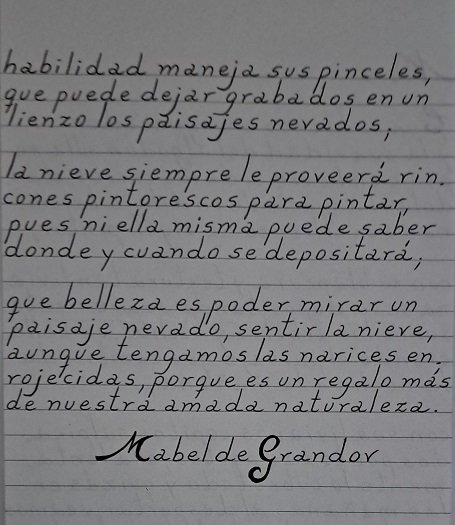 habilidad maneja sus pinceles,
que puede dejar grabados en un
lienzo los paisajes nevados;
la nieve siempre le proveerá rin.
cones pintorescos para pintar,
pues ni ella misma puede saber
donde y cuando se depositará;
que belleza es poder mirar un
paisaje nevado, sentir la nieve,
aunque tengamos las narices en.
rojecidas, porque es un regalo más
de nuestra amada naturaleza.
Mabel de Grandov